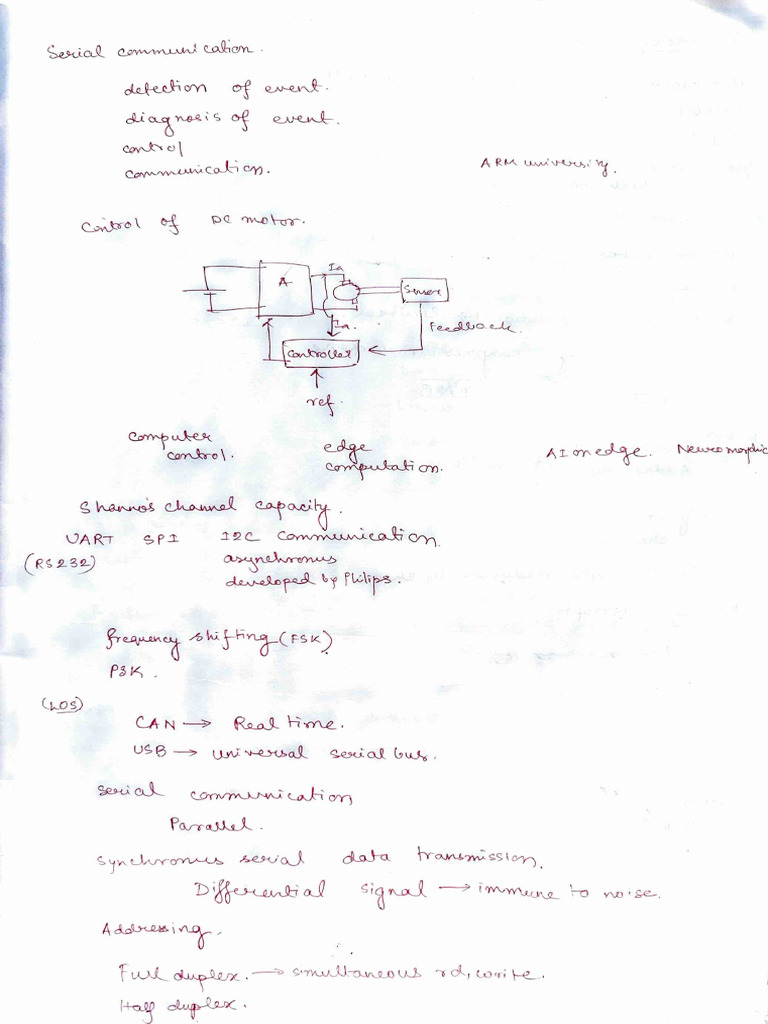 Serial communication.
detection of event.
diagnosis of event.
control
communication.
ARM university.
Control of DC motor.
A
Ia
Sensor
Ia.
Feedback.
Controller
ref.
computer control.
edge computation.
AI on edge. Neuromorphic
Shanno's channel capacity.
UART SPI I2C communication.
(RS232)
asynchronus
developed by Philips.
frequency shifting (FSK)
PSK.
(LOS)
CAN → Real time.
USB → universal serial bus.
serial communication
Parallel.
Synchronus serial data transmission.
Differential signal → immune to noise.
Addressing.
Full duplex. → simultaneous rd, write.
Half duplex.